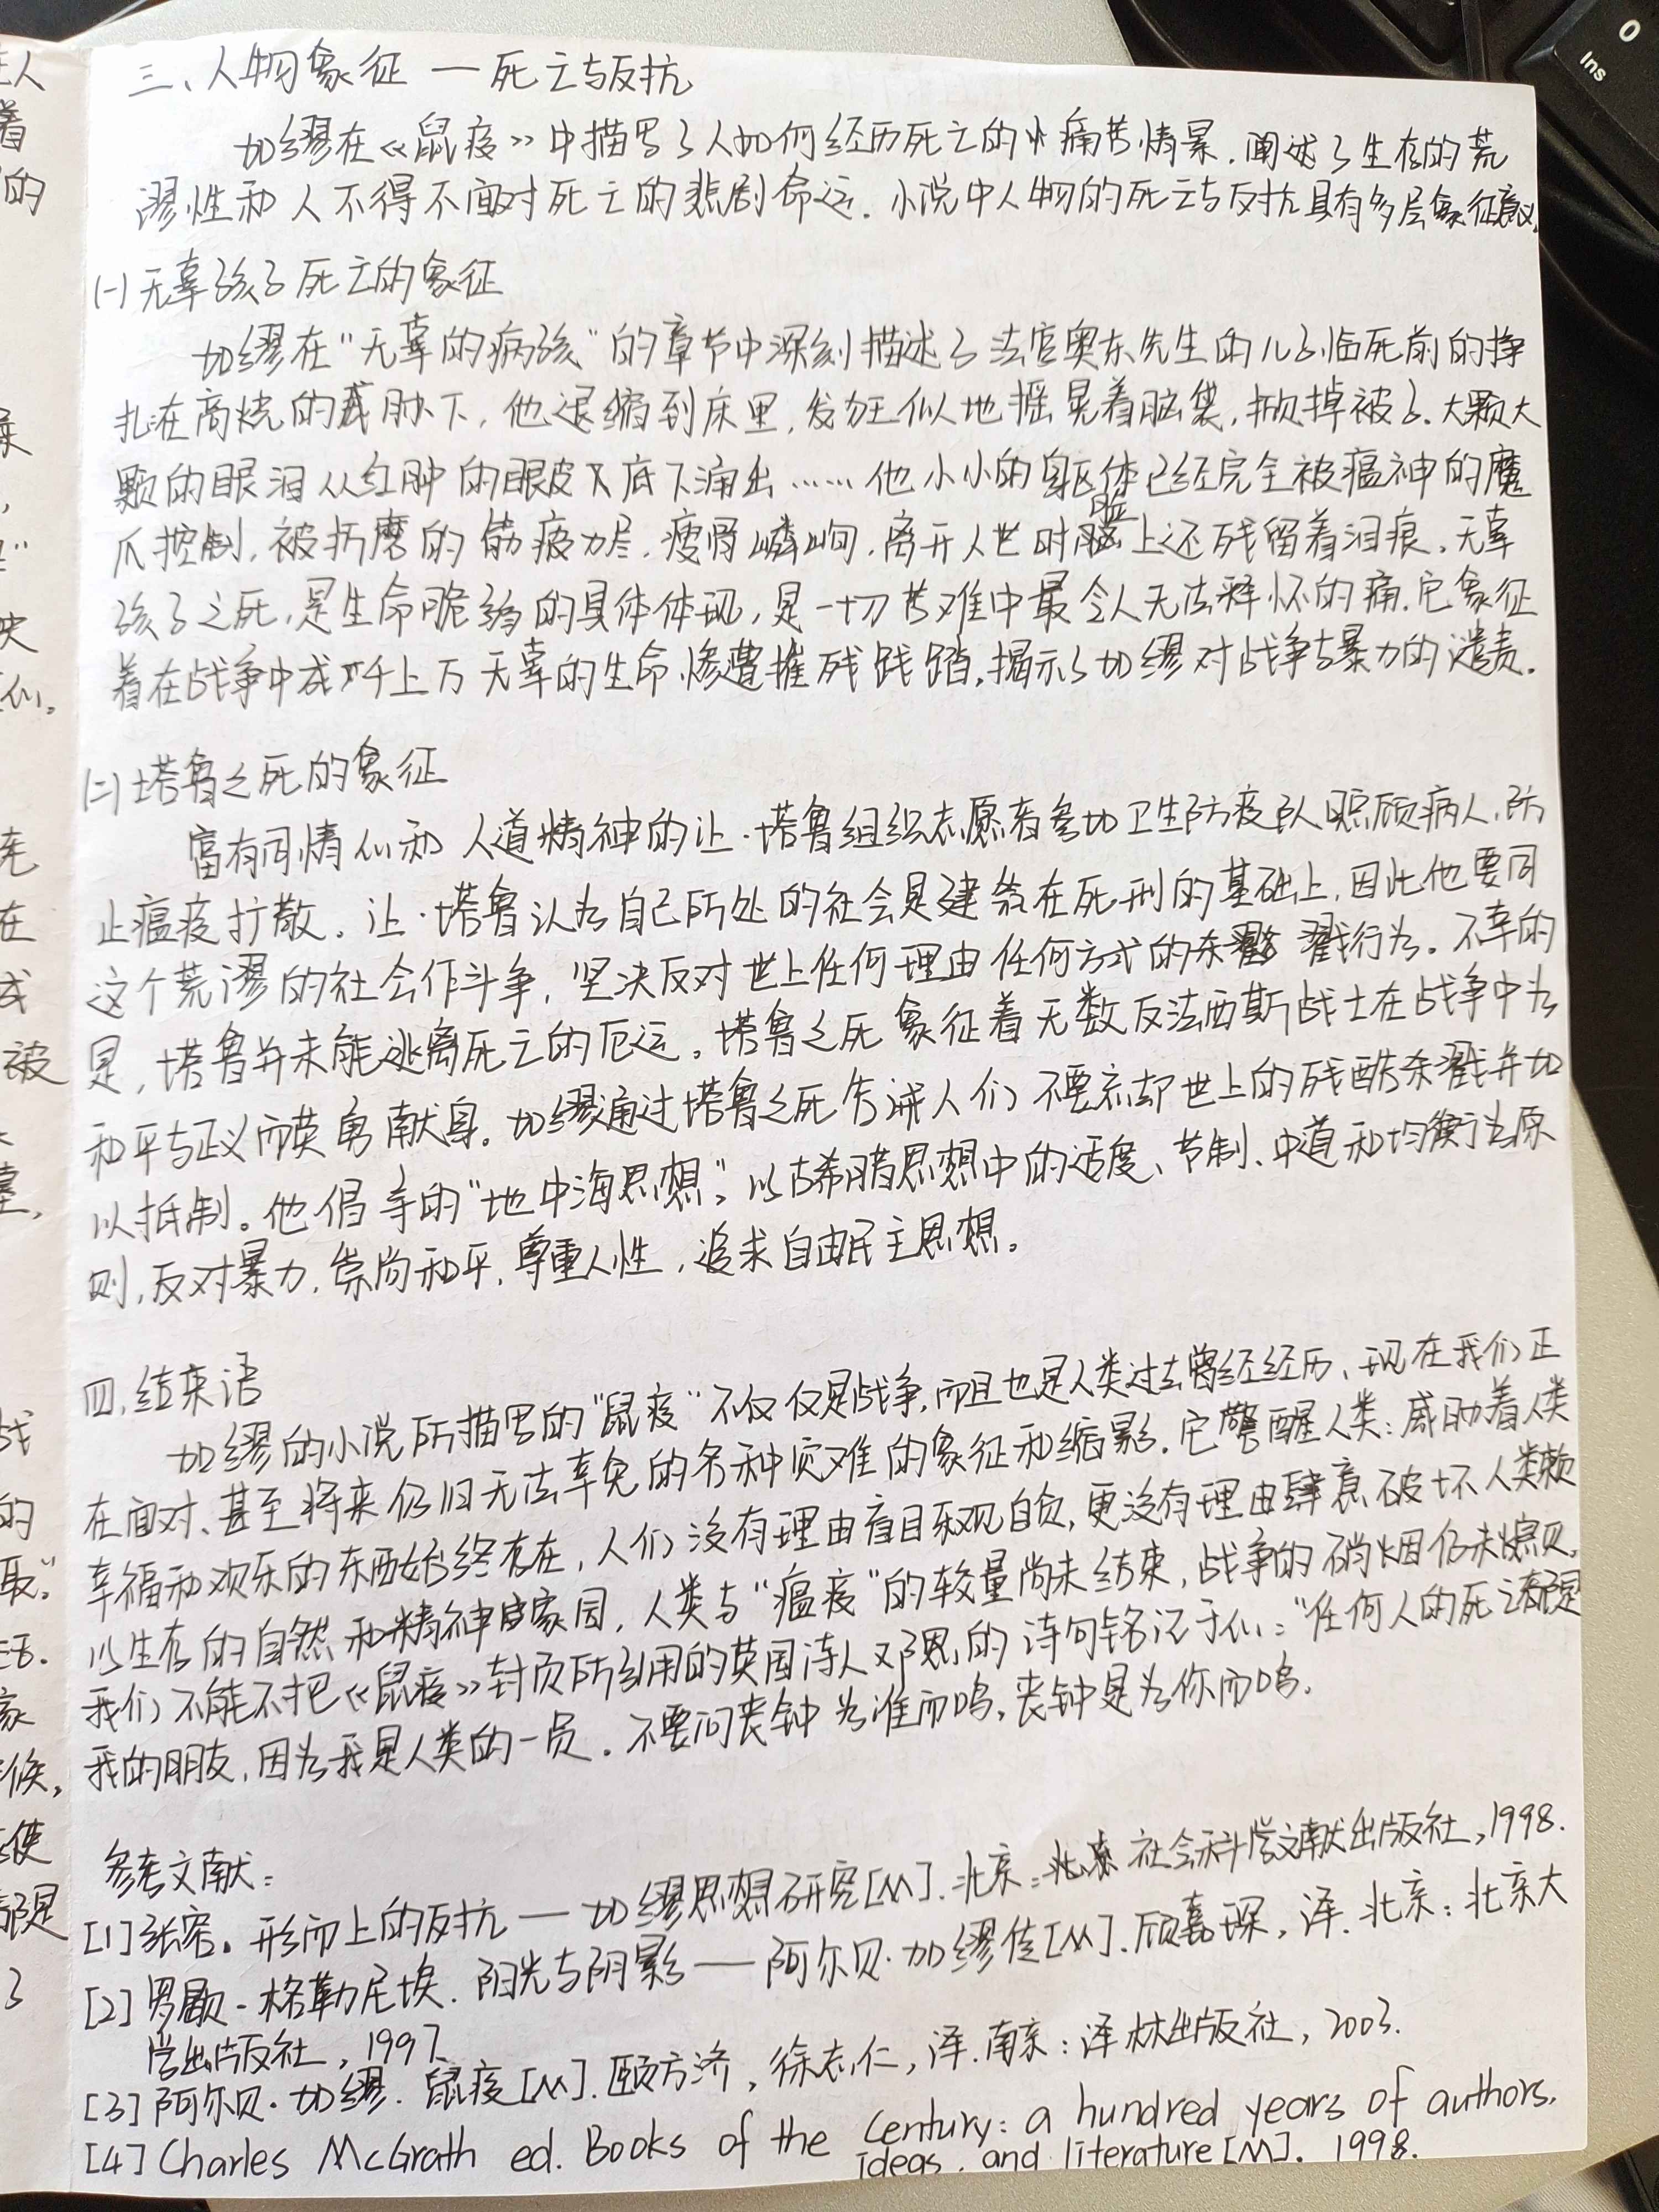 三、人物象征 — 死亡与反抗
加缪在《鼠疫》中描写了人如何经历死亡的痛苦情景,阐述了生存的荒
谬性和人不得不面对死亡的悲剧命运.小说中人物的死亡与反抗具有多层象征意义.
(一)无辜孩子死亡的象征
加缪在"无辜的病孩"的章节中深刻描述了法官奥东先生的儿子临死前的挣
扎:在高烧的威胁下,他退缩到床里,发狂似地摇晃着脑袋,掀掉被子.大颗大
颗的眼泪从红肿的眼皮底下涌出……他小小的身躯体已经完全被瘟神的魔
爪控制,被折磨的筋疲力尽,瘦骨嶙峋,离开人世时脸上还残留着泪痕.无辜
孩子之死,是生命脆弱的具体体现,是一切苦难中最令人无法释怀的痛.它象征
着在战争中成千上万无辜的生命惨遭摧残践踏,揭示了加缪对战争与暴力的谴责.
(二)塔鲁之死的象征
富有同情心和人道精神的让·塔鲁组织志愿者参加卫生防疫队照顾病人,防
止瘟疫扩散。让·塔鲁认为自己所处的社会是建筑在死刑的基础上,因此他要同
这个荒谬的社会作斗争,坚决反对世上任何理由任何方式的杀戮行为。不幸的
是,塔鲁并未能逃离死亡的厄运。塔鲁之死象征着无数反法西斯战士在战争中为
和平与正义而英勇献身。加缪通过塔鲁之死告诫人们不要忘却世上的残酷杀戮并加
以抵制。他倡导的"地中海思想",以古希腊思想中的适度、节制、中道和均衡为原
则,反对暴力,崇尚和平,尊重人性,追求自由民主思想。
四.结束语
加缪的小说所描写的"鼠疫"不仅仅是战争,而且也是人类过去曾经经历、现在我们正
在面对、甚至将来仍旧无法幸免的各种灾难的象征和缩影.它警醒人类:威胁着人类
幸福和欢乐的东西始终存在,人们没有理由盲目乐观自负,更没有理由肆意破坏人类赖
以生存的自然和精神家园,人类与"瘟疫"的较量尚未结束,战争的硝烟仍未熄灭,
我们不能不把《鼠疫》封页所引用的英国诗人邓恩的诗句铭记于心:"任何人的死亡都是
我的朋友,因为我是人类的一员.不要问丧钟为谁而鸣,丧钟是为你而鸣.
参考文献:
[1]张容。形而上的反抗—加缪思想研究[M].北京:社会科学文献出版社,1998.
[2]罗歇-格勒尼埃.阳光与阴影—阿尔贝·加缪传[M].顾嘉琛,译.北京:北京大
学出版社,1997.
[3]阿尔贝·加缪.鼠疫[M].顾方济,徐志仁,译.南京:译林出版社,2003.
[4]Charles McGrath ed. Books of the Century: a hundred years of authors.
ideas, and literature[M]. 1998.
0
Ins